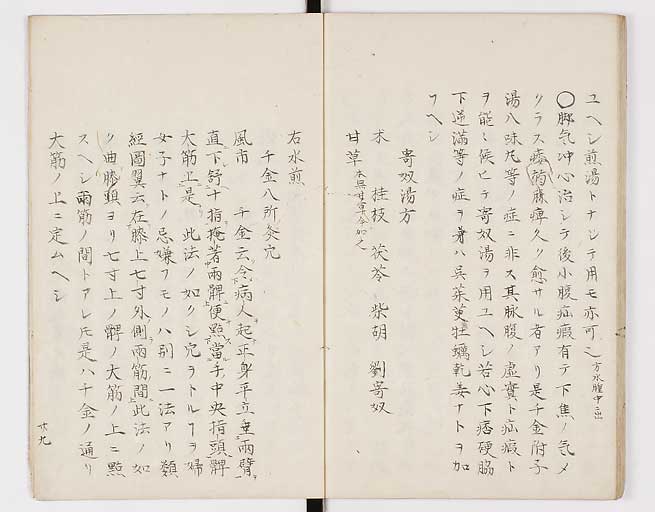 ユヘシ煎湯トナシテ用モ亦可也 方水腫中ニ出
〇脚気冲心治シテ後小腹疝瘕有テ下焦ノ気メ
クラス痿弱麻痺久ク愈サル者アリ是千金附子
湯八味丸等ノ症ニ非ス其脉腹ノ虚實ト疝瘕ト
ヲ能々候ヒテ寄奴湯ヲ用ユヘシ若心下痞硬脇
下逆滿等ノ症ヲ兼ハ呉茱萸牡蠣乾姜ナトヲ加
フヘシ
寄奴湯方
朮 桂枝 茯苓 柴胡 劉寄奴
甘草 本無甘草今加之
右水煎
千金八所灸穴
風市 千金云令病人起正身平立垂兩臂
直下舒十指掩著兩髀便點當手中央指頭髀
大筋上是 此法ノ如クシ穴ヲトルヿヲ婦
女子ナトノ忌嫌フモノハ別ニ一法アリ類
經圖翼云在膝上七寸外側兩筋間此法ノ如
ク曲膝頭ヨリ七寸上ノ髀ノ大筋ノ上ニ點
スヘシ兩筋ノ間トアレ𪜈是ハ千金ノ通リ
大筋ノ上ニ定ムヘシ
廿九